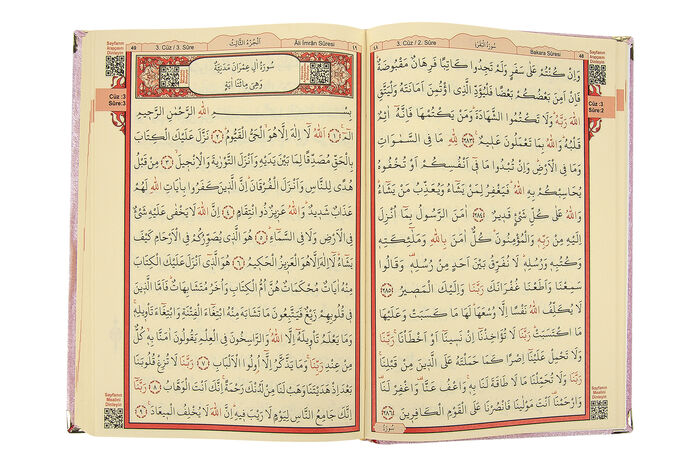 ١٨
3. Cüz / 2. Sûre
سُورَةُ الْبَقَرَةِ
Bakara Sûresi
48
Sayfanın
Arapçasını
Dinleyin
Cüz :3
Sûre:2
وَاِنْ كُنْتُمْ عَلٰى سَفَرٍ وَلَمْ تَجِدُوا كَاتِبًا فَرِهَانٌ مَقْبُوضَةٌ
فَاِنْ اَمِنَ بَعْضُكُمْ بَعْضًا فَلْيُؤَدِّ الَّذِي اؤْتُمِنَ اَمَانَتَهُ وَلْيَتَّقِ
اللّٰهَ رَبَّهُ وَلَا تَكْتُمُوا الشَّهَادَةَ وَمَنْ يَكْتُمْهَا فَاِنَّهُ اٰثِمٌ
قَلْبُهُ وَاللّٰهُ بِمَا تَعْمَلُونَ عَلِيمٌ ﴿٢٨٣﴾ لِلّٰهِ مَا فِي السَّمٰوَاتِ
وَمَا فِي الْاَرْضِ وَاِنْ تُبْدُوا مَا فِي اَنْفُسِكُمْ اَوْ تُخْفُوهُ
يُحَاسِبْكُمْ بِهِ اللّٰهُ فَيَغْفِرُ لِمَنْ يَشَاءُ وَيُعَذِّبُ مَنْ يَشَاءُ
وَاللّٰهُ عَلٰى كُلِّ شَيْءٍ قَدِيرٌ ﴿٢٨٤﴾ اٰمَنَ الرَّسُولُ بِمَا اُنْزِلَ
اِلَيْهِ مِنْ رَبِّهِ وَالْمُؤْمِنُونَ كُلٌّ اٰمَنَ بِاللّٰهِ وَمَلٰئِكَتِهِ
وَكُتُبِهِ وَرُسُلِهِ لَا نُفَرِّقُ بَيْنَ اَحَدٍ مِنْ رُسُلِهِ وَقَالُوا
سَمِعْنَا وَاَطَعْنَا غُفْرَانَكَ رَبَّنَا وَاِلَيْكَ الْمَصِيرُ ﴿٢٨٥﴾
لَا يُكَلِّفُ اللّٰهُ نَفْسًا اِلَّا وُسْعَهَا لَهَا مَا كَسَبَتْ وَعَلَيْهَا
مَا اكْتَسَبَتْ رَبَّنَا لَا تُؤَاخِذْنَا اِنْ نَسِينَا اَوْ اَخْطَأْنَا رَبَّنَا
وَلَا تَحْمِلْ عَلَيْنَا اِصْرًا كَمَا حَمَلْتَهُ عَلَى الَّذِينَ مِنْ قَبْلِنَا
رَبَّنَا وَلَا تُحَمِّلْنَا مَا لَا طَاقَةَ لَنَا بِهِ وَاعْفُ عَنَّا وَاغْفِرْ لَنَا
وَارْحَمْنَا اَنْتَ مَوْلٰينَا فَانْصُرْنَا عَلَى الْقَوْمِ الْكَافِرِينَ ﴿٢٨٦﴾
سُورَةُ
Sayfanın
Mealini
Dinleyin
49
3. Cüz / 3. Sûre
اَلْجُزْءُ الثَّالِثُ
Âli İmrân Sûresi
Sayfanın
Arapçasını
Dinleyin
Cüz :3
Sûre:3
سُورَةُ اٰلِ عِمْرَانَ مَدَنِيَّةٌ
وَهِيَ مِائَتَا اٰيَةٍ
بِسْمِ اللّٰهِ الرَّحْمٰنِ الرَّحِيمِ
الٓمٓ ﴿١﴾ اَللّٰهُ لَا اِلٰهَ اِلَّا هُوَ الْحَيُّ الْقَيُّومُ ﴿٢﴾ نَزَّلَ عَلَيْكَ الْكِتَابَ
بِالْحَقِّ مُصَدِّقًا لِمَا بَيْنَ يَدَيْهِ وَاَنْزَلَ التَّوْرٰيةَ وَالْاِنْجِيلَ ﴿٣﴾ مِنْ قَبْلُ
هُدًى لِلنَّاسِ وَاَنْزَلَ الْفُرْقَانَ اِنَّ الَّذِينَ كَفَرُوا بِاٰيَاتِ اللّٰهِ لَهُمْ
عَذَابٌ شَدِيدٌ وَاللّٰهُ عَزِيزٌ ذُو انْتِقَامٍ ﴿٤﴾ اِنَّ اللّٰهَ لَا يَخْفٰى عَلَيْهِ شَيْءٌ
فِي الْاَرْضِ وَلَا فِي السَّمَاءِ ﴿٥﴾ هُوَ الَّذِي يُصَوِّرُكُمْ فِي الْاَرْحَامِ كَيْفَ
يَشَاءُ لَا اِلٰهَ اِلَّا هُوَ الْعَزِيزُ الْحَكِيمُ ﴿٦﴾ هُوَ الَّذِي اَنْزَلَ عَلَيْكَ الْكِتَابَ
مِنْهُ اٰيَاتٌ مُحْكَمَاتٌ هُنَّ اُمُّ الْكِتَابِ وَاُخَرُ مُتَشَابِهَاتٌ فَاَمَّا الَّذِينَ
فِي قُلُوبِهِمْ زَيْغٌ فَيَتَّبِعُونَ مَا تَشَابَهَ مِنْهُ ابْتِغَاءَ الْفِتْنَةِ وَابْتِغَاءَ تَأْوِيلِهِ
وَمَا يَعْلَمُ تَأْوِيلَهُ اِلَّا اللّٰهُ وَالرَّاسِخُونَ فِي الْعِلْمِ يَقُولُونَ اٰمَنَّا بِهِ كُلٌّ
مِنْ عِنْدِ رَبِّنَا وَمَا يَذَّكَّرُ اِلَّا اُولُوا الْاَلْبَابِ ﴿٧﴾ رَبَّنَا لَا تُزِغْ قُلُوبَنَا
بَعْدَ اِذْ هَدَيْتَنَا وَهَبْ لَنَا مِنْ لَدُنْكَ رَحْمَةً اِنَّكَ اَنْتَ الْوَهَّابُ ﴿٨﴾ رَبَّنَا
اِنَّكَ جَامِعُ النَّاسِ لِيَوْمٍ لَا رَيْبَ فِيهِ اِنَّ اللّٰهَ لَا يُخْلِفُ الْمِيعَادَ ﴿٩﴾
Sayfanın
Mealini
Dinleyin